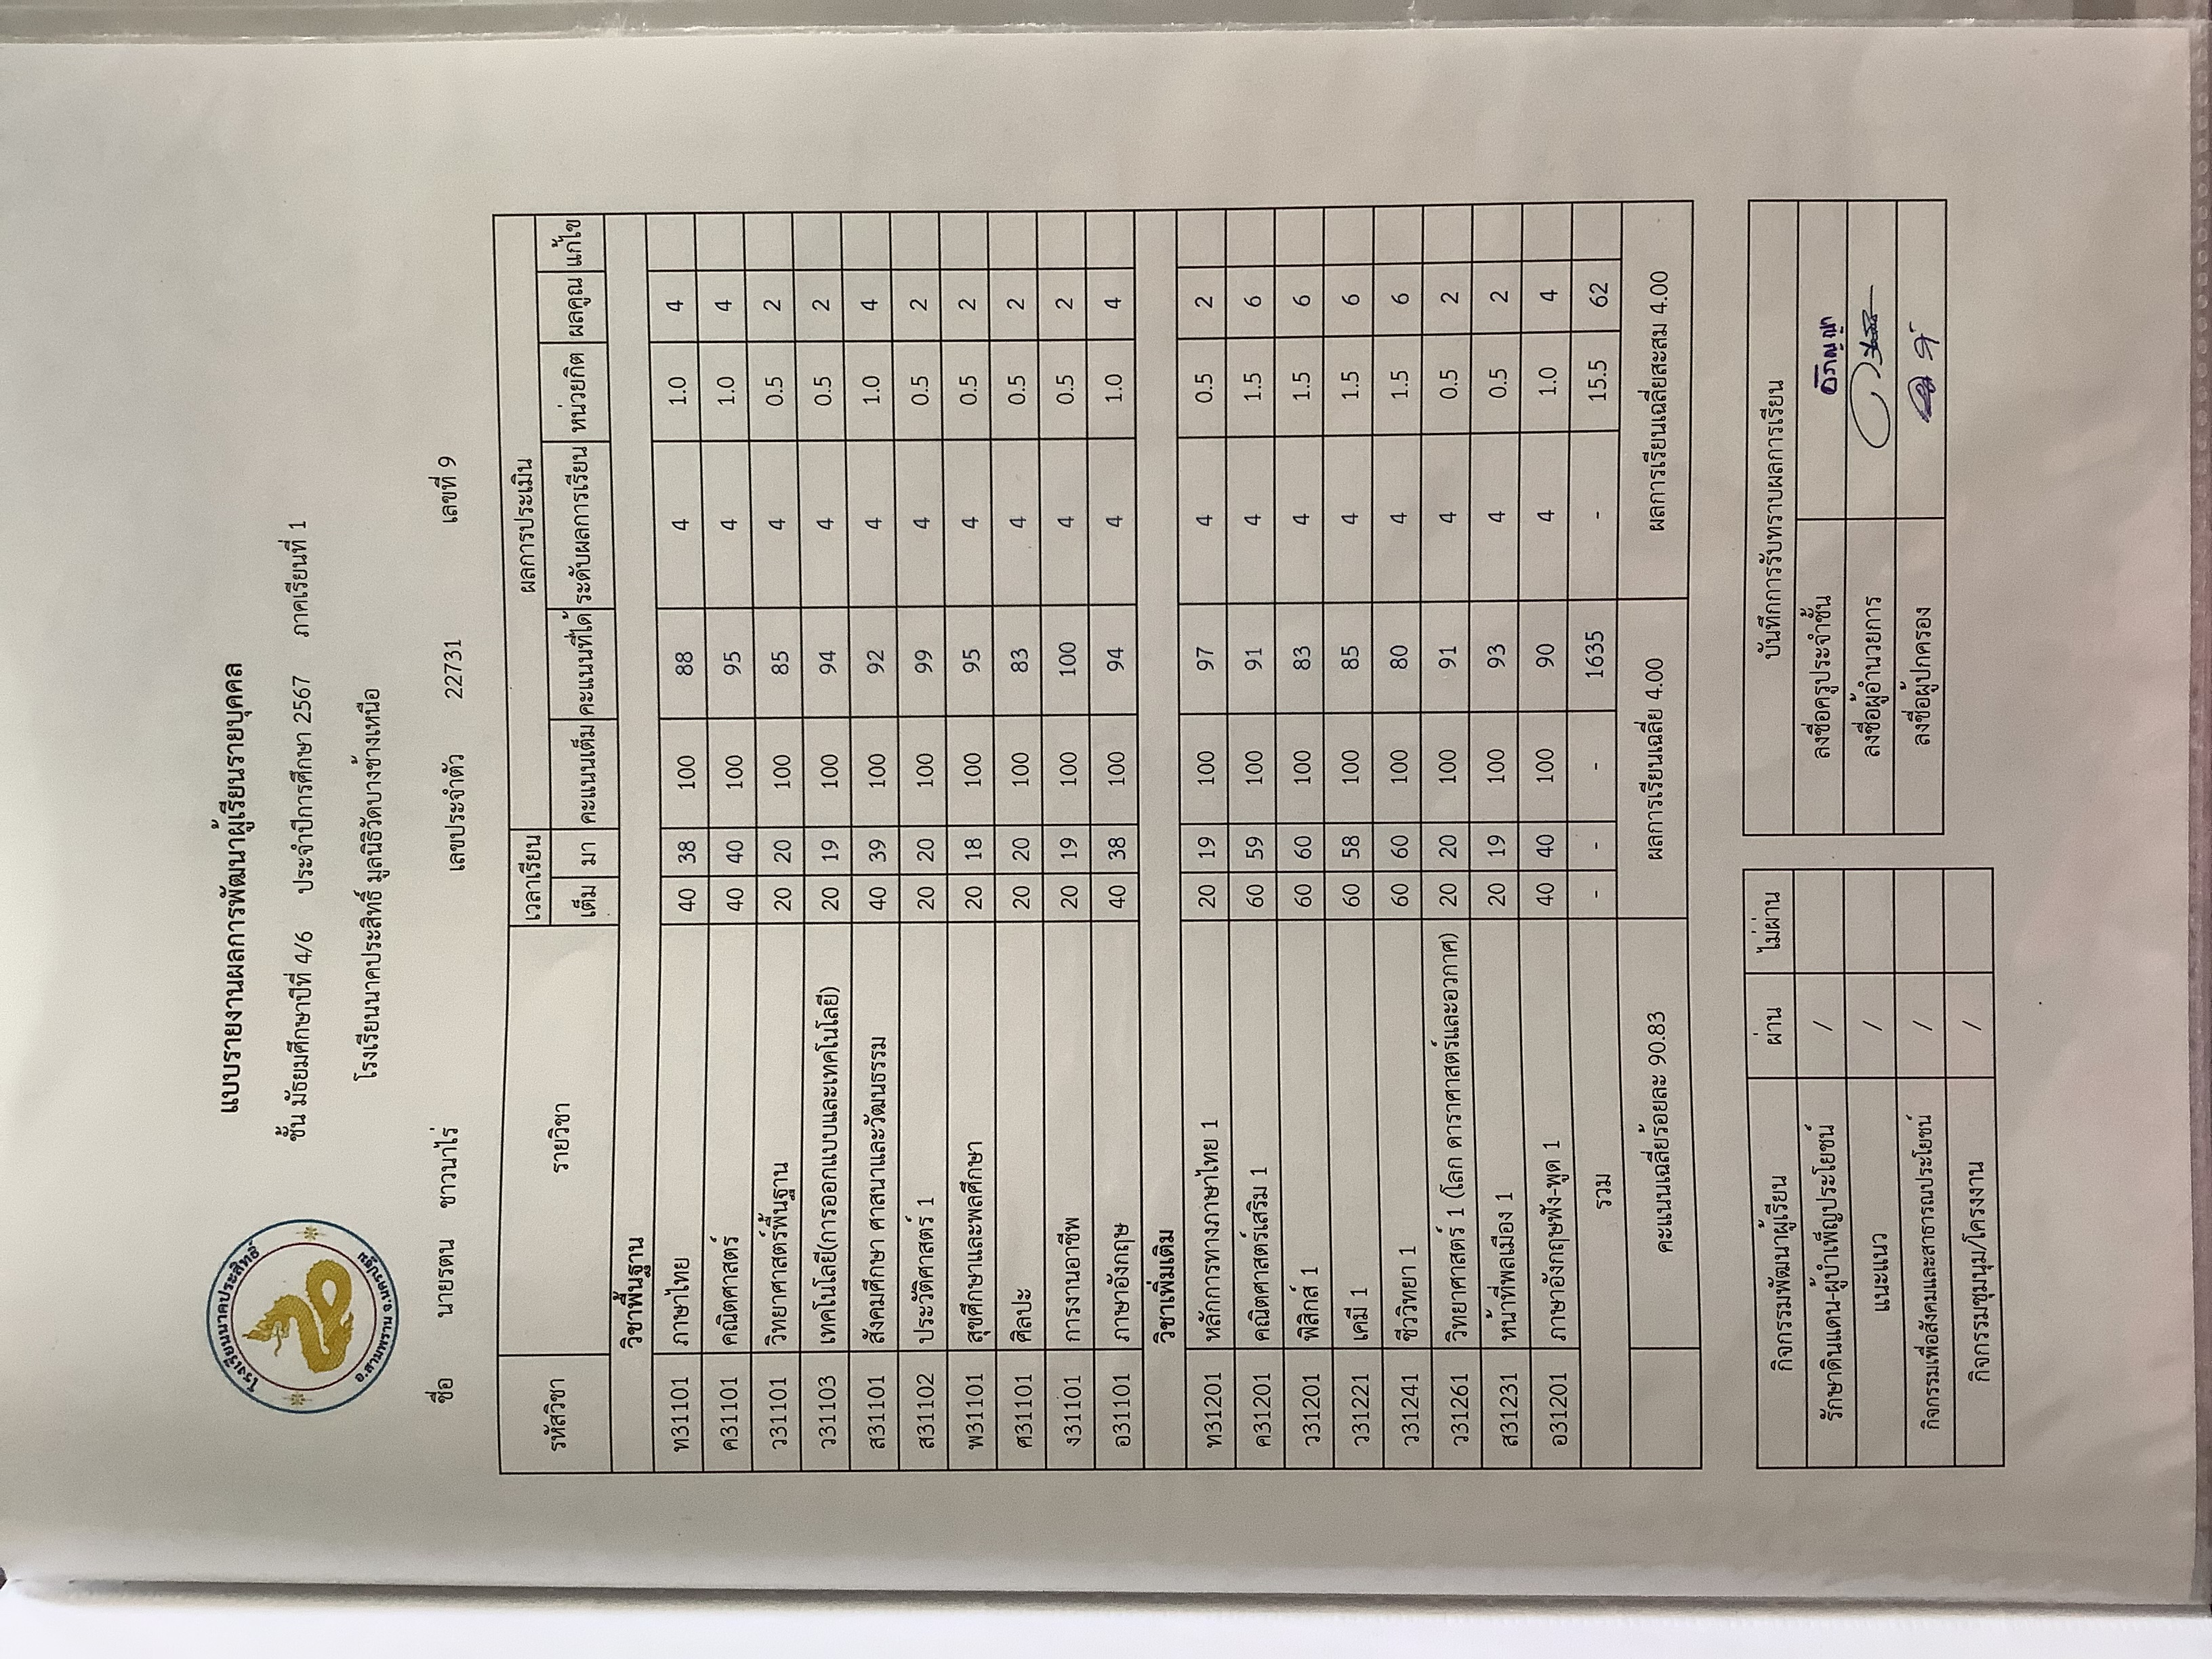 โรงเรียนนาคประสิทธิ์
อ.สามพราน จ.นครปฐม
แบบรายงานผลการพัฒนาผู้เรียนรายบุคคล
ชั้น มัธยมศึกษาปีที่ 4/6 ประจำปีการศึกษา 2567 ภาคเรียนที่ 1
โรงเรียนนาคประสิทธิ์ มูลนิธิวัดบางช้างเหนือ
ชื่อ นายรตน ชาวนาไร่ เลขประจำตัว 22731 เลขที่ 9
รหัสวิชา รายวิชา เวลาเรียน ผลการประเมิน
เต็ม มา คะแนนเต็ม คะแนนที่ได้ ระดับผลการเรียน หน่วยกิต ผลคูณ แก้ไข
วิชาพื้นฐาน
ท31101 ภาษาไทย 40 38 100 88 4 1.0 4
ค31101 คณิตศาสตร์ 40 40 100 95 4 1.0 4
ว31101 วิทยาศาสตร์พื้นฐาน 20 20 100 85 4 0.5 2
ว31103 เทคโนโลยี(การออกแบบและเทคโนโลยี) 20 19 100 94 4 0.5 2
ส31101 สังคมศึกษา ศาสนาและวัฒนธรรม 40 39 100 92 4 1.0 4
ส31102 ประวัติศาสตร์ 1 20 20 100 99 4 0.5 2
พ31101 สุขศึกษาและพลศึกษา 20 18 100 95 4 0.5 2
ศ31101 ศิลปะ 20 20 100 83 4 0.5 2
ง31101 การงานอาชีพ 20 19 100 100 4 0.5 2
อ31101 ภาษาอังกฤษ 40 38 100 94 4 1.0 4
วิชาเพิ่มเติม
ท31201 หลักการทางภาษาไทย 1 20 19 100 97 4 0.5 2
ค31201 คณิตศาสตร์เสริม 1 60 59 100 91 4 1.5 6
ว31201 ฟิสิกส์ 1 60 60 100 83 4 1.5 6
ว31221 เคมี 1 60 58 100 85 4 1.5 6
ว31241 ชีววิทยา 1 60 60 100 80 4 1.5 6
ว31261 วิทยาศาสตร์ 1 (โลก ดาราศาสตร์และอวกาศ) 20 20 100 91 4 0.5 2
ส31231 หน้าที่พลเมือง 1 20 19 100 93 4 0.5 2
อ31201 ภาษาอังกฤษฟัง-พูด 1 40 40 100 90 4 1.0 4
รวม - - - 1635 - 15.5 62
คะแนนเฉลี่ยร้อยละ 90.83 ผลการเรียนเฉลี่ย 4.00 ผลการเรียนเฉลี่ยสะสม 4.00
กิจกรรมพัฒนาผู้เรียน ผ่าน ไม่ผ่าน
รักษาดินแดน-ผู้บำเพ็ญประโยชน์ /
แนะแนว /
กิจกรรมเพื่อสังคมและสาธารณประโยชน์ /
กิจกรรมชุมนุม/โครงงาน /
บันทึกการรับทราบผลการเรียน
ลงชื่อครูประจำชั้น
ลงชื่อผู้อำนวยการ
ลงชื่อผู้ปกครอง